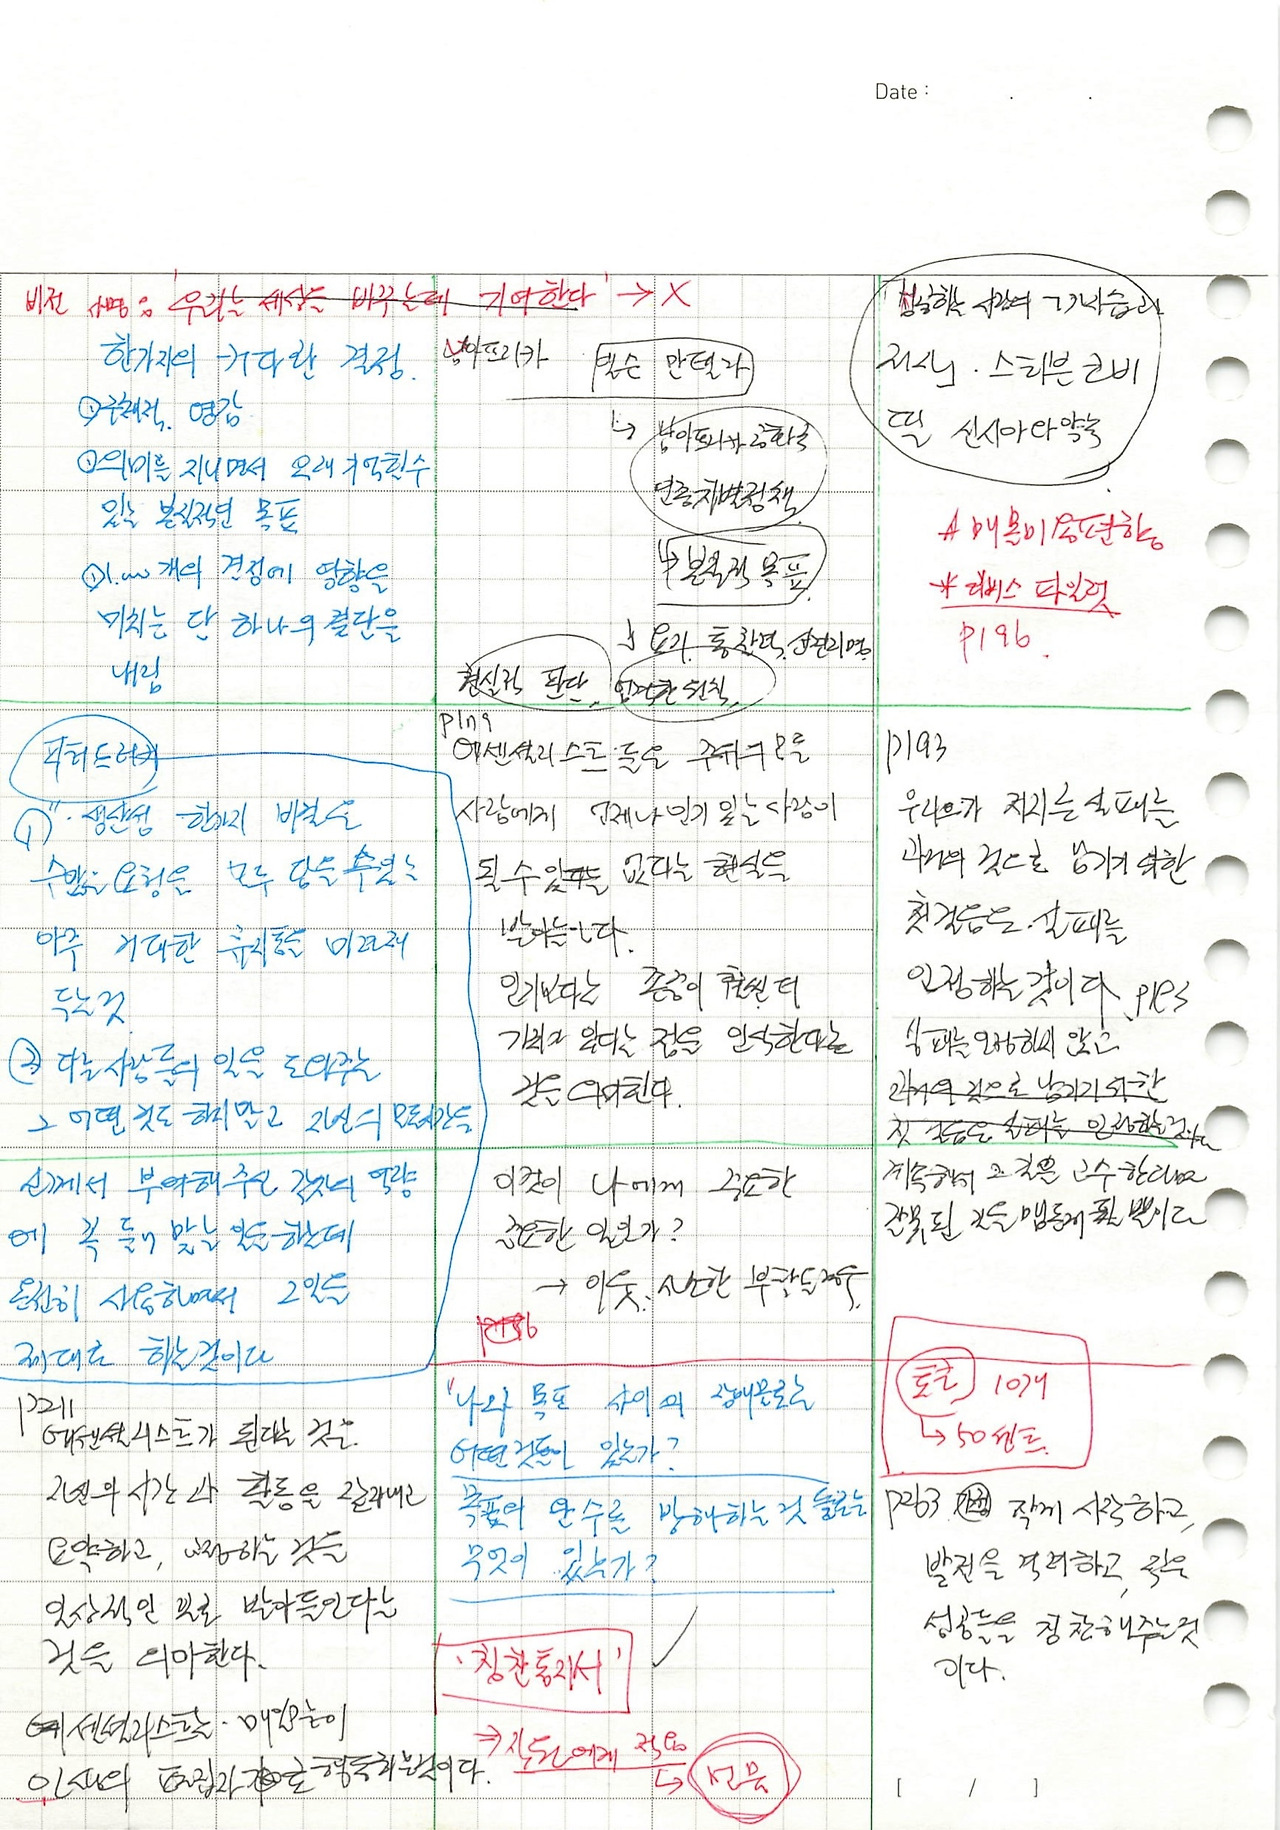 Date :
비전 사명 : '우리는 세상을 바꾸는데 기여한다' → X
한가지의 커다란 결정.
① 구체적. 영감
① 의미를 지니면서 오래 기억할수
있는 본질적인 목표
① 1,000개의 결정에 영향을
미치는 단 하나의 결단을
내림
남아프리카 넬슨 만델라
↳ 남아프리카 공화국
인종차별정책
↳ 본질적 목표
↓ 용기. 통찰력.
현실적 판단, 엄격한 원칙,
스티븐 코비
딸 신시아와 약속
p196.
피터드러커
① " 생산성 한가지 비결은
수많은 요청을 모두 담을 수 있는
아주 거대한 휴지통을 마련해
두는 것
② 다른 사람들의 일을 도와주는
그 어떤 것도 하지말고 자신의 모든시간을
신께서 부여해주신 각자의 역량
에 꼭 들어 맞는 일을 하는데
온전히 사용하면서 그일을
제대로 하는것이다
에센셜리스트들은 주위의 모든
사람에게 언제나 인기 있는 사람이
될 수 없다는 현실을
받아들인다.
인기보다는 존중이 훨씬 더
가치가 있다는 점을 인식한다는
것을 의미한다.
이것이 나에게 중요한
중요한 일인가?
→ 이웃. 사소한 부탁도
p193
우리가 저지른 실패를
과거의 것으로 남기기 위한
첫걸음은 실패를
인정하는 것이다. p193
실패를 인정하지 않고
과거의 것으로 남기기 위한
첫 걸음은 실패를 인정하는것
계속해서 그 길을 고수한다면
잘못된 것을 맴돌게 될 뿐이다
p211
에센셜리스트가 된다는 것은
자신의 시간과 활동을 잘라내고
요약하고, 교정하는 것을
일상적인 일로 받아들인다는
것을 의미한다.
에센셜리스트는 매일같이
인생의 편집자로 행동하는것이다.
"나와 목표 사이의 장애물로는
어떤것들이 있는가?
목표의 완수를 방해하는 것들로는
무엇이 있는가?
'칭찬통지서'
⇒ 직원에게 적용
↳ 선물
토큰 10개
↳ 50센트.
p263. 작게 시작하고,
발전을 격려하고, 작은
성공들을 칭찬해주는것
이다.
[ / ]